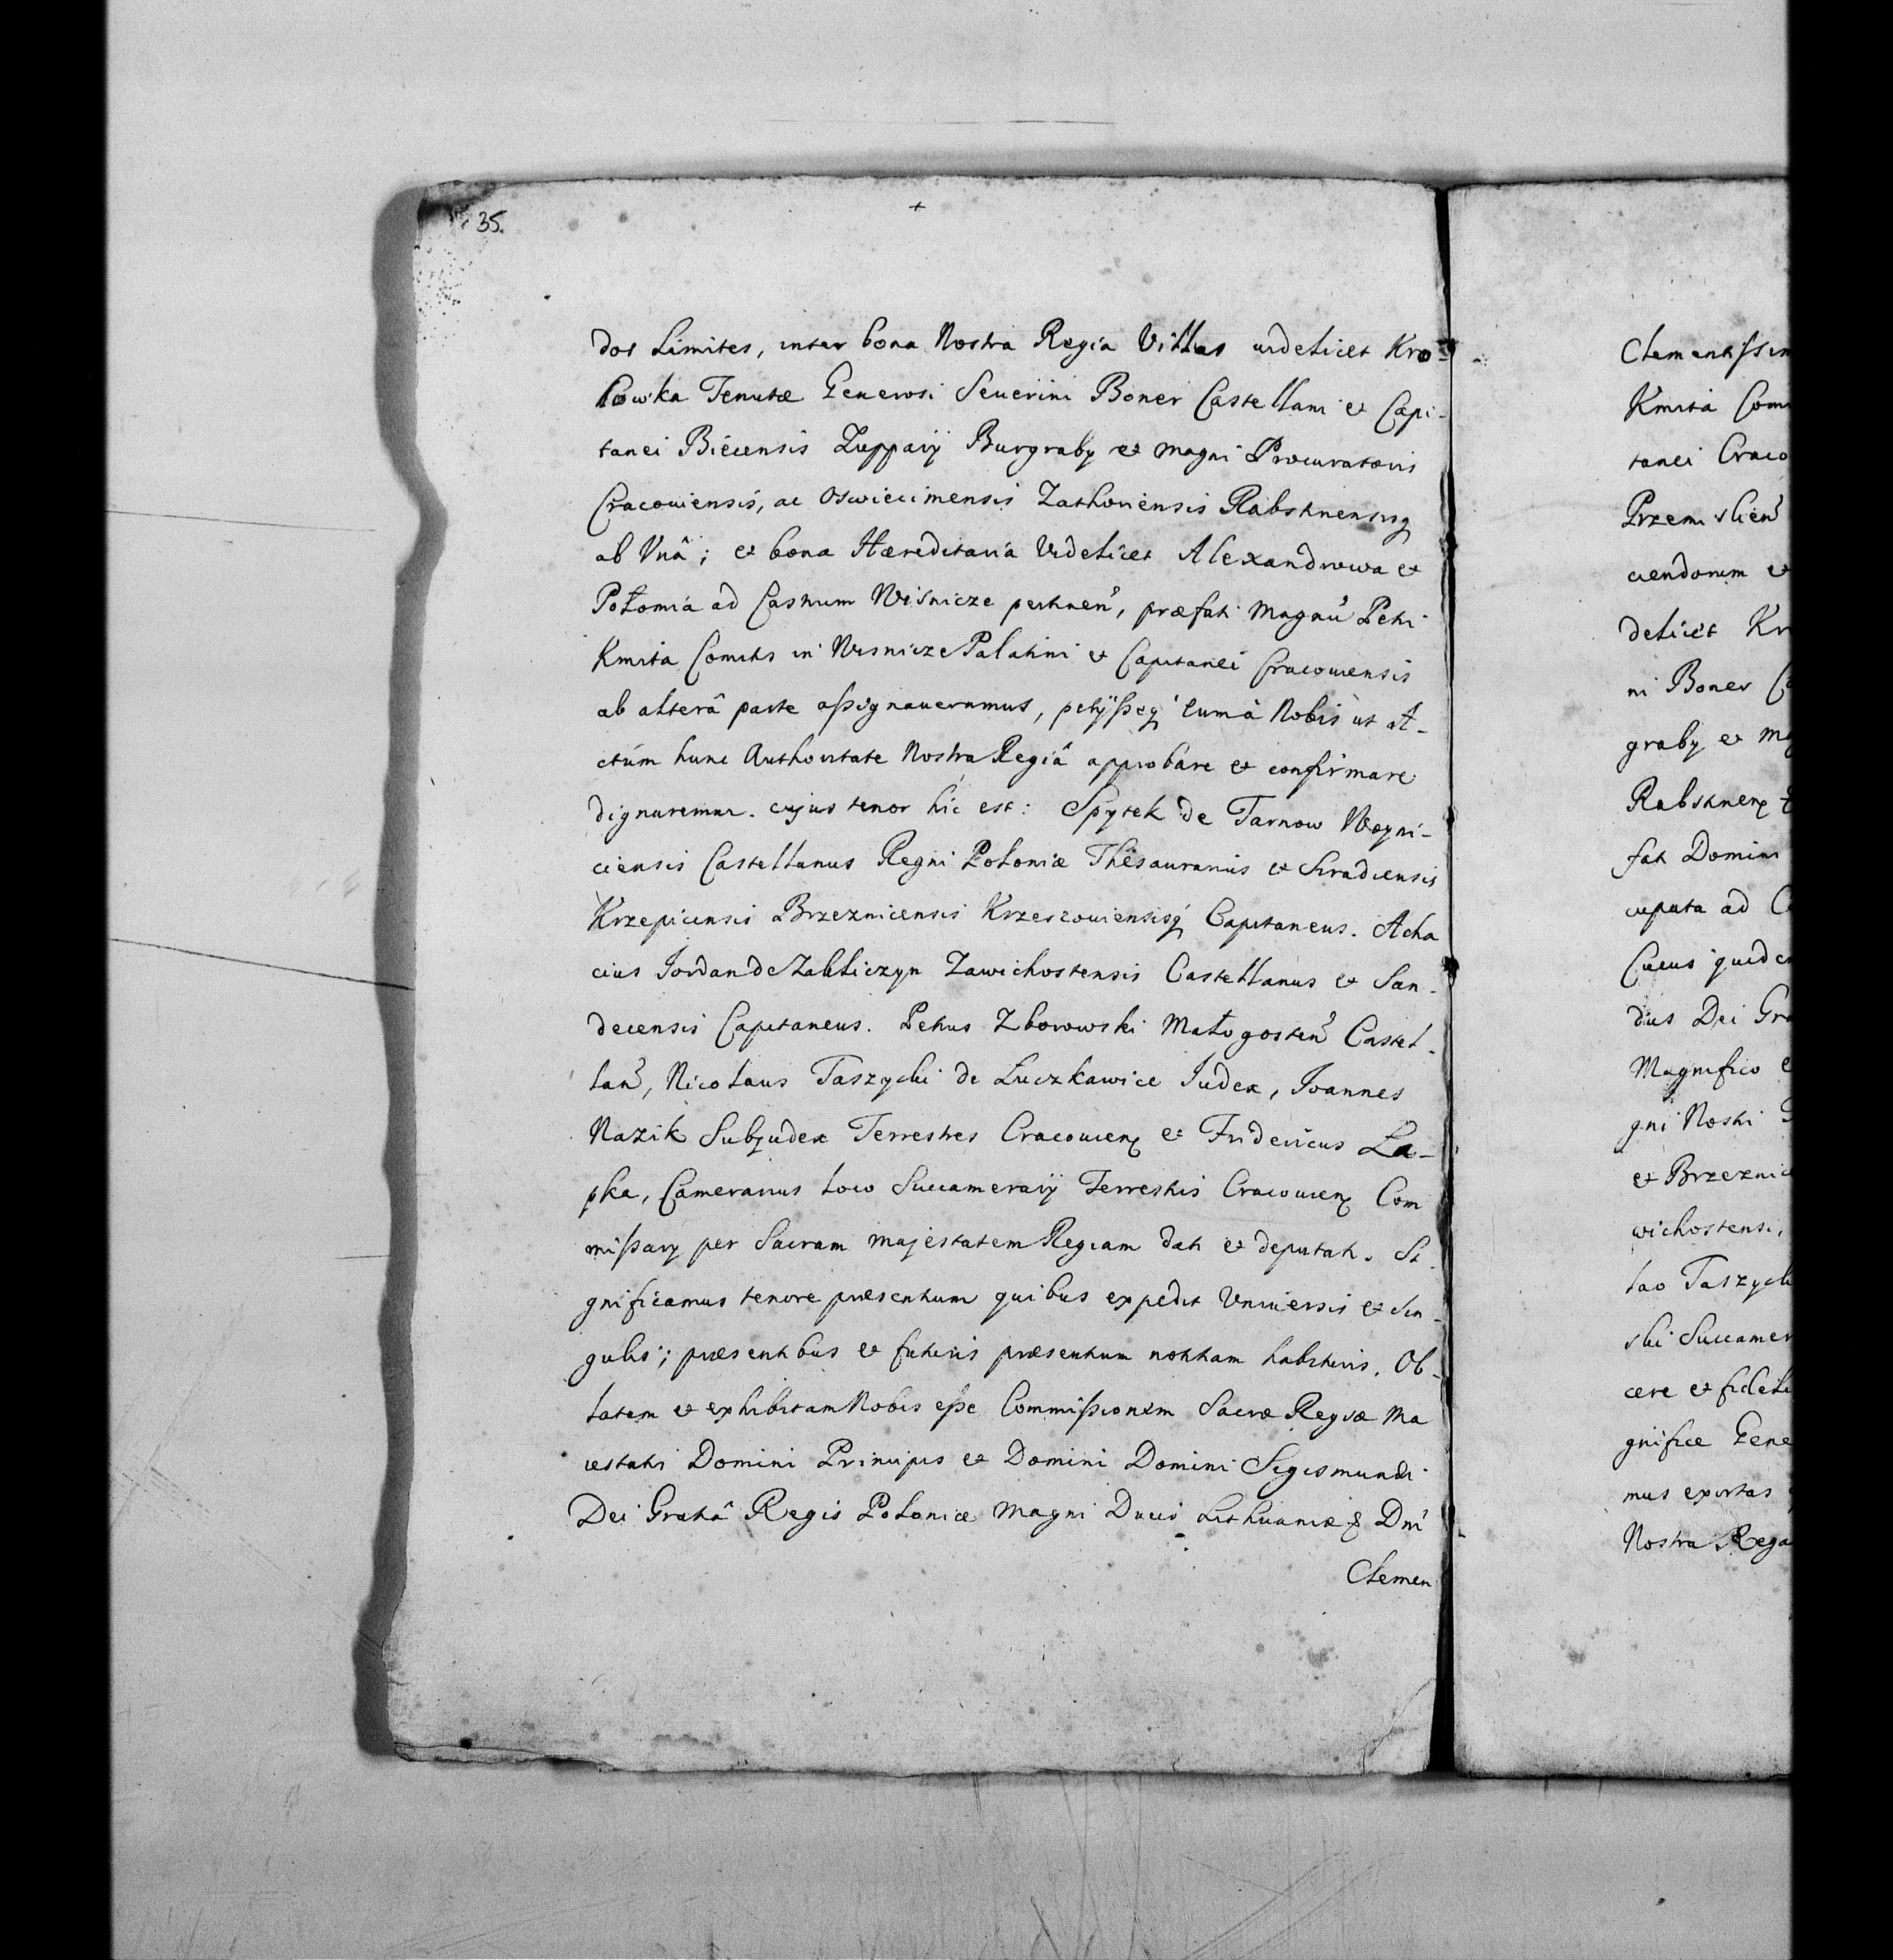 35.
dos Limites, inter bona Nostra Regia Villas videlicet Kro-
lowka Tenutæ Generosi Seuerini Boner Castellani et Capi-
tanei Biecensis Zupparij Burgraby et magni Procuratoris
Cracouiensis, ac Oswiecimensis Zathoriensis Rabsthnensisq
ab Vnâ; et bona Hæreditaria Videlicet Alexandrowa et
Połomia ad Castrum Wisnicze pertinen, præfati Magnci Petri
Kmita Comitis in Wisnicze Palatini et Capitanei Cracouiensis
ab alterâ parte aßignauerimus, petijßeq Nobis ut A-
ctúm hunc Authoritate Nostra Regiâ approbare et confirmare
dignaremur. cujus tenor hic est: Spytek de Tarnow Woyni-
ciensis Castellanus Regni Poloniæ Thesaurarius et Siradiensis
Krzepicensis Brzeznicensis Krzeszouiensisq Capitaneus. Acha
cius Jordan de Zakliczyn Zawichostensis Castellanus et San-
decensis Capitaneus. Petrus Zborowski Małogosten Castel-
lan, Nicolaus Taszycki de Luczkawice Judex, Joannes
Nazik Subjudex Terrestres Cracouien et Fridericus La-
pka, Camerarius loco Succamerarij Terrestris Cracouien Com
mißarij per Sacram majestatem Regiam dati et deputati. Si
gnificamus tenore præsentium quibus expedit Vniuersis et Sin-
gulis; præsentibus et futuris præsentium notitiam habituris. Ob-
latam et exhibitam Nobis eße Commißionem Sacræ Regiæ Ma
iestatis Domini Principis et Domini Domini Sigismundi
Dei Gratiâ Regis Poloniæ Magni Ducis Lithuaniæ & Dni
Clemen
Clementissim
Kmita Com
tanei Craco
Przemislien
ciendorum et
delicet Kr
ni Boner C
graby et Ma
Rabsthnen
fati Domini
cupata ad C
Cuius quide
dus Dei Gra
Magnifico e
gni Nostri
et Brzeznic
wichostensi,
lao Taszyck
ski Succamer
cere et fideli
gnifice Gene
mus exortas
Nostra Rega